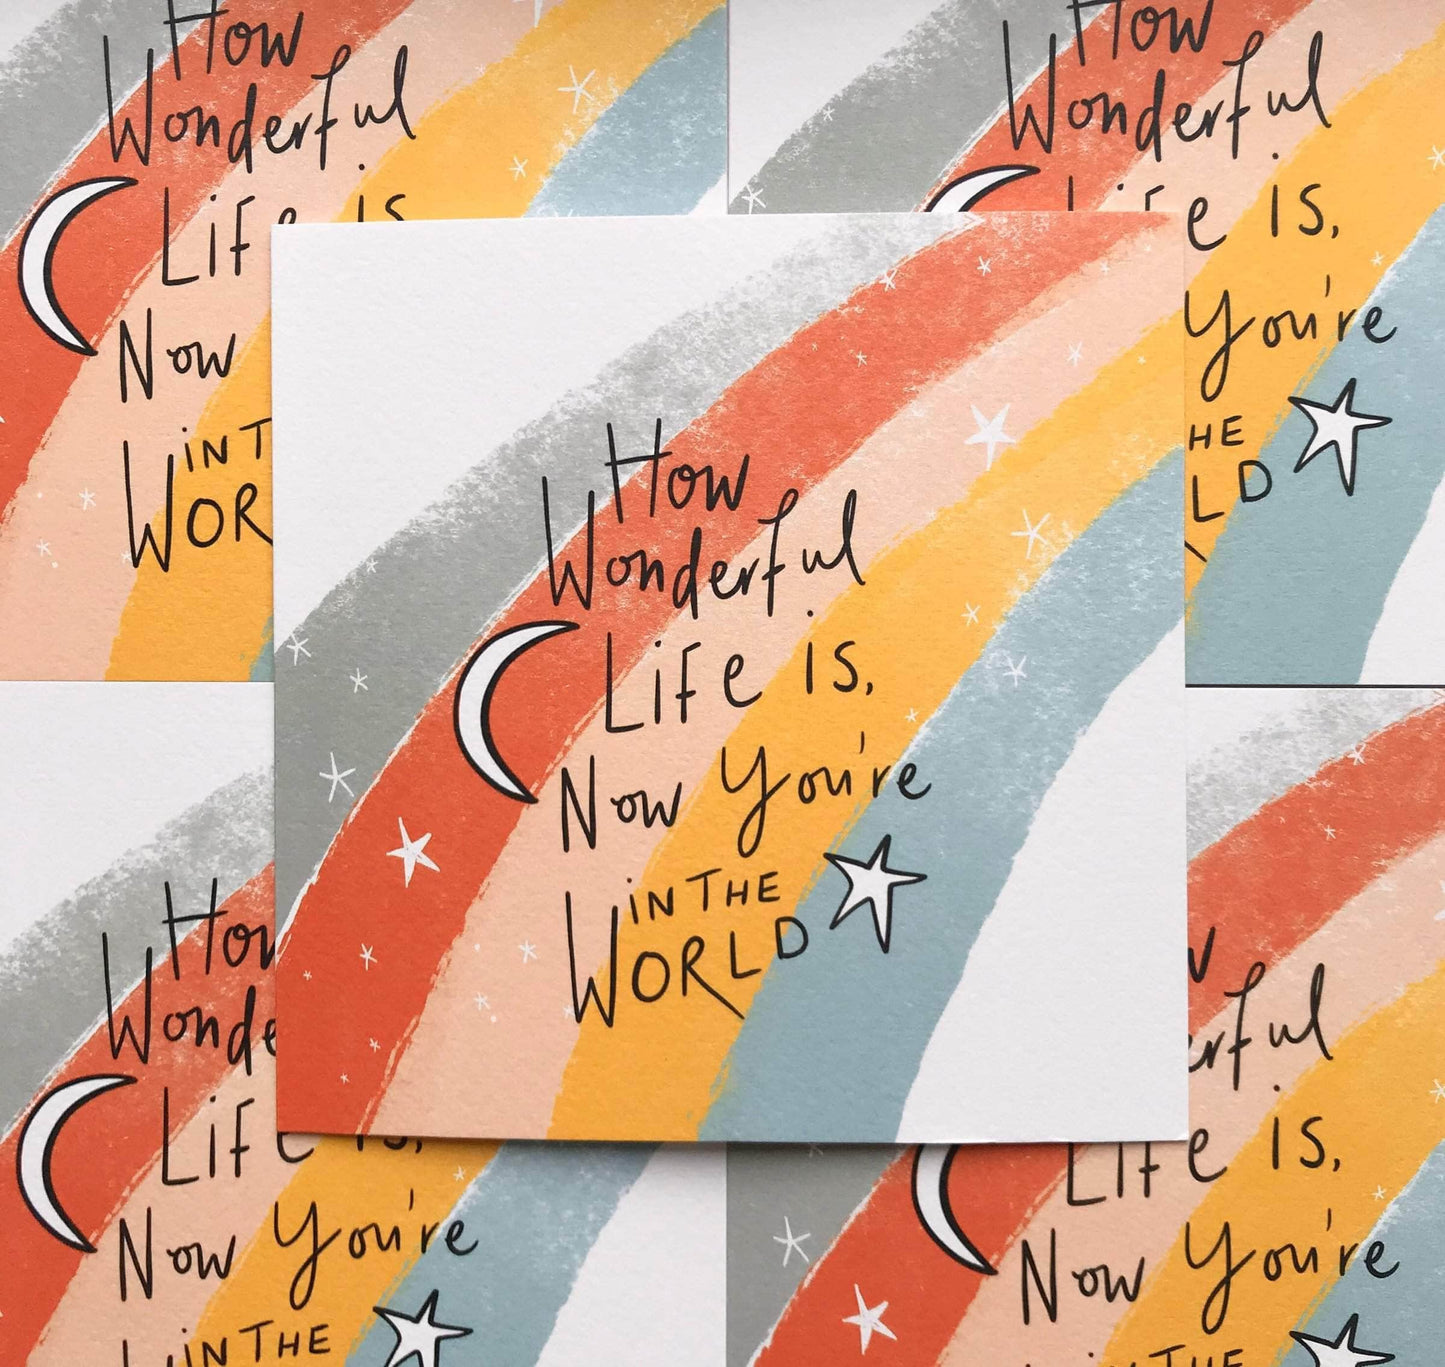 How
Wonderful
Life is
Now
in T
WOR
How
Wonderful
Life is,
You're
HE
LD
How
Wonderful
Life is,
Now You're
in THE
WORLD
How
Wonde
Life is,
Now You're
in THE
w
erful
Life is,
Now You're
in THE